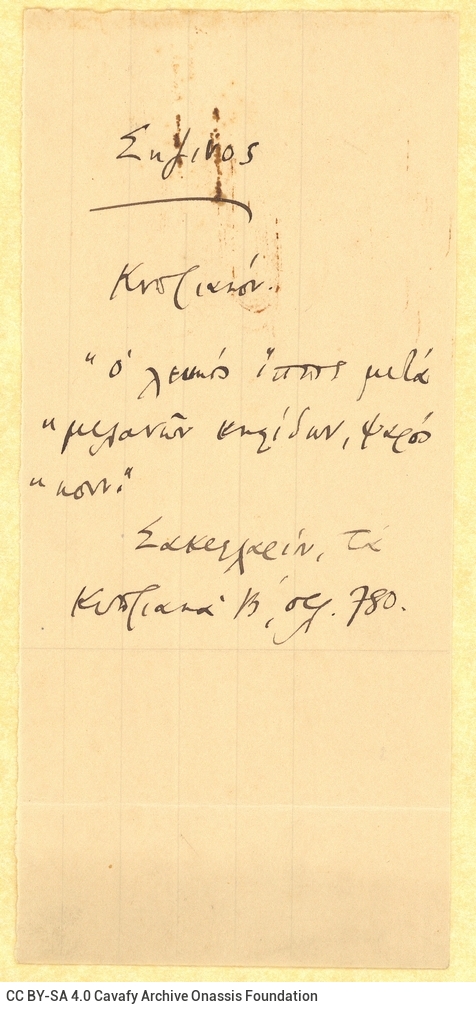 Σιψινος
Κυπριακόν.
"ὁ λευκός ἵππος μετά
"μελανῶν κηλίδων, ψαρός
"κοιν."
Σακελλαρίου, τά
Κυπριακά Β', σελ. 780.
CC BY-SA 4.0 Cavafy Archive Onassis Foundation